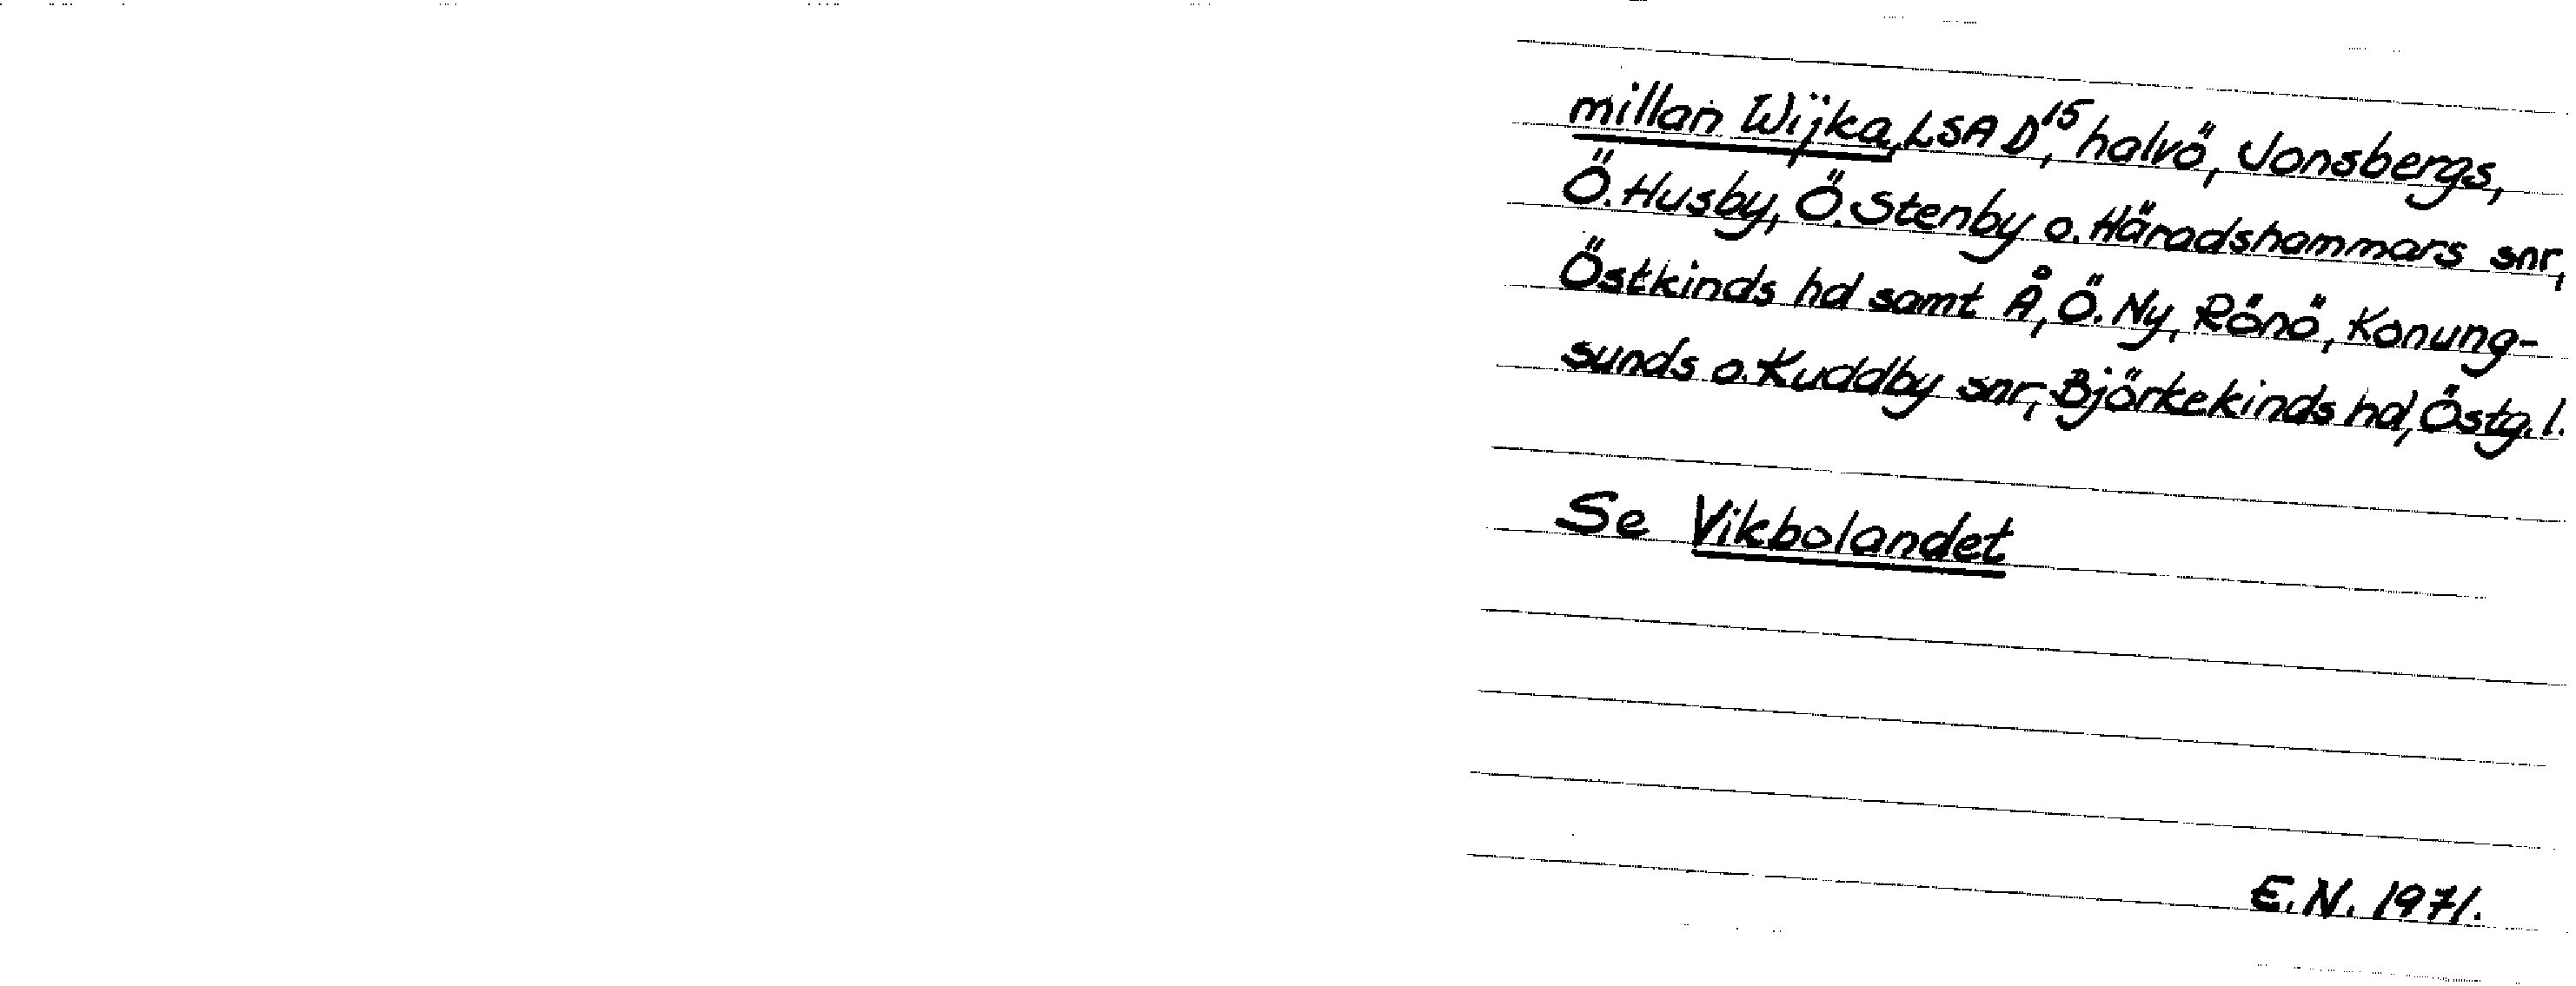 millan Wijka, LSA D15, halvö, Jonsbergs,
Ö. Husby, Ö. Stenby o. Häradshammars snr,
Östkinds hd samt Å, Ö. Ny, Rönö, Konung-
sunds o. Kuddby snr, Björkekinds hd, Östg. l.
Se Vikbolandet
E.N. 1971.